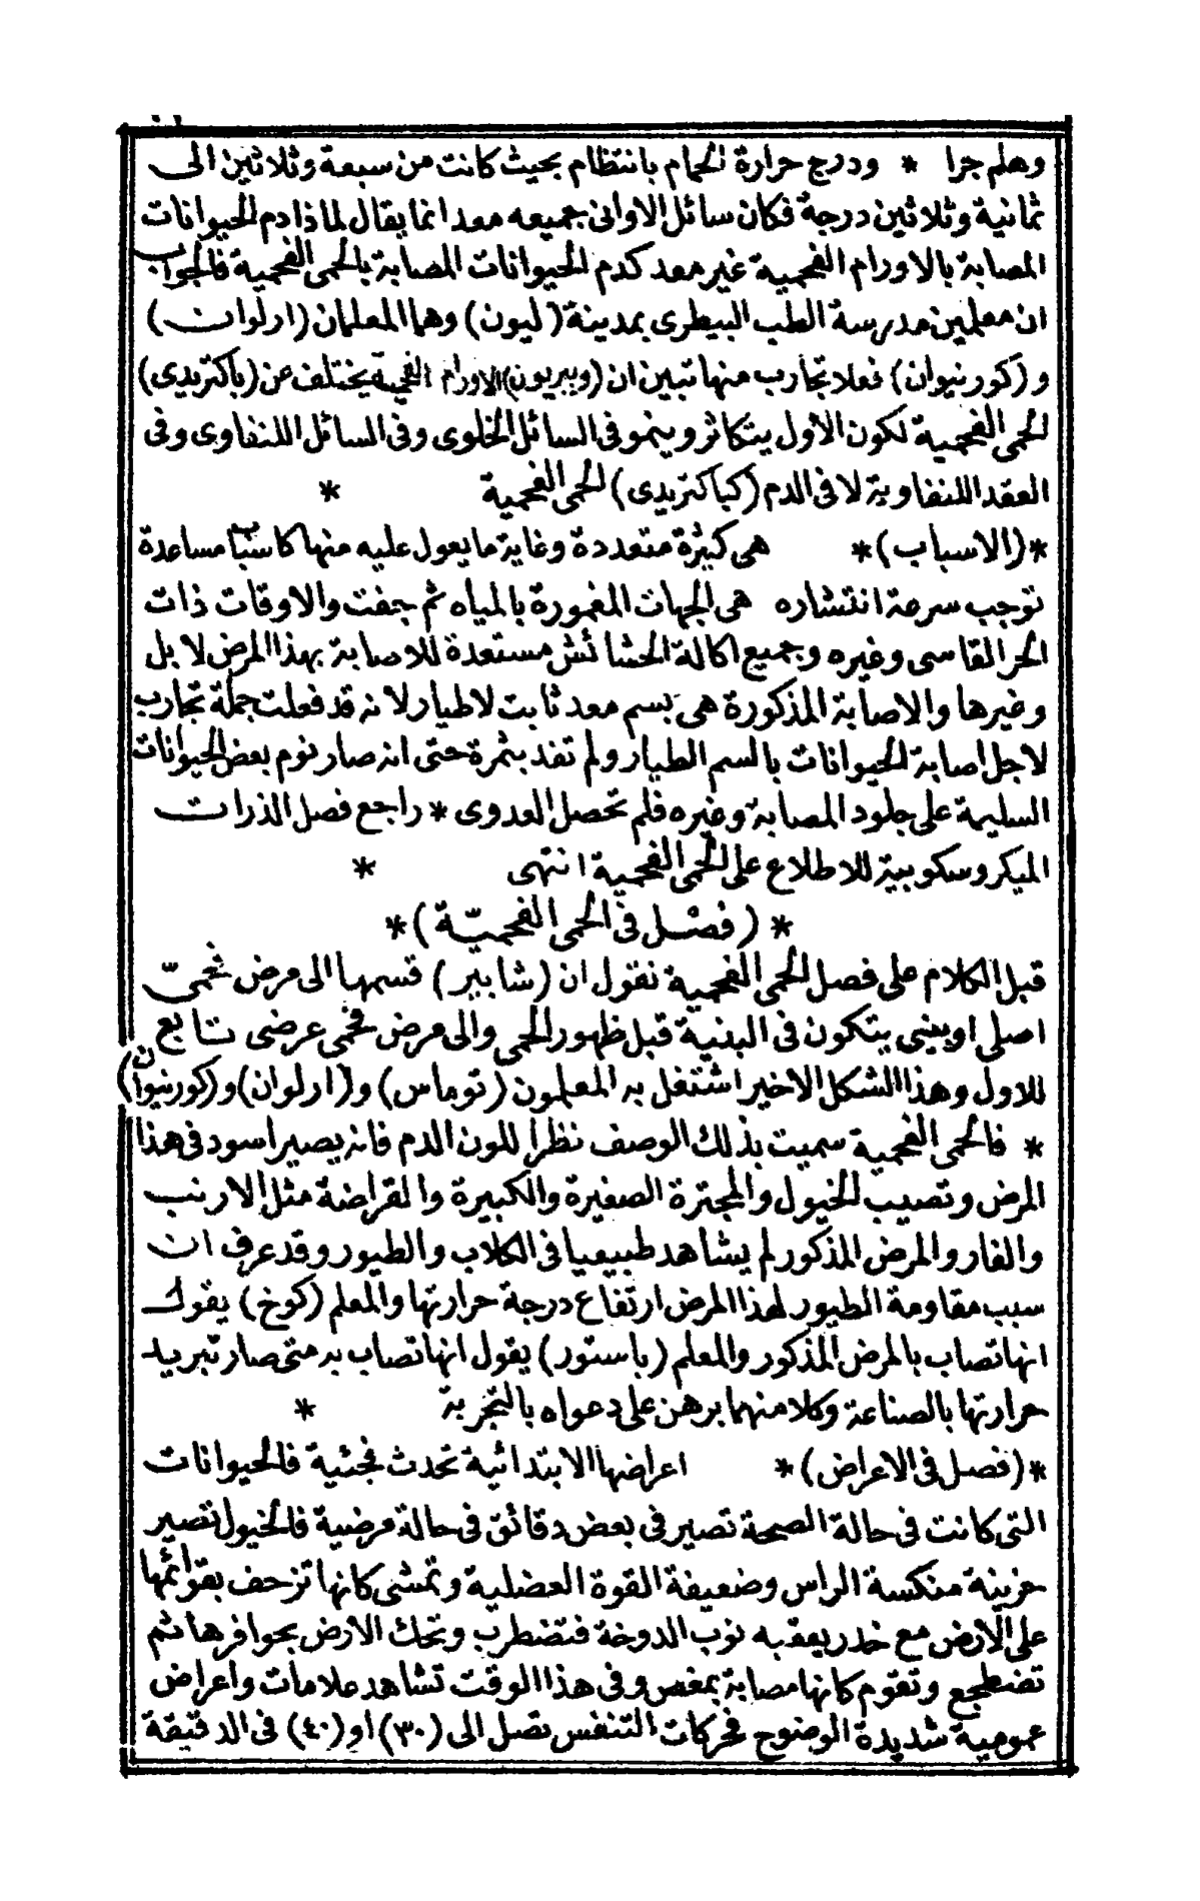 وهلم جرا * ودرج حرارة الحمام بانتظام بحيث كانت من سبعة وثلاثين الى
ثمانية وثلاثين درجة فكان سائل الاوانى جميعه معد انما يقال لماذا دم الحيوانات
المصابة بالاورام الفحمية غير معد كدم الحيوانات المصابة بالحمى الفحمية فالجواب
ان معلمين مدرسة الطب البيطرى بمدينة (ليون) وهما المعلمان (ارلوان)
و (كورنيوان) فعلا تجارب منها تبين ان (ويبريون) الاورام الفحمية يختلف عن (باكتريدى)
الحمى الفحمية لكون الاول يتكاثر وينمو فى السائل الخلوى وفى السائل اللنفاوى وفى
العقد اللنفاوية لا فى الدم (كباكتريدى) الحمى الفحمية *
* (الاسباب) * هى كثيرة متعددة وغاية ما يعول عليه منها كاسباب مساعدة
توجب سرعة انتشاره هى الجهات المغمورة بالمياه ثم جفت والاوقات ذات
الحر القاسى وغيره وجميع اكالة الحشائش مستعدة للاصابة بهذا المرض لا بل
وغيرها والاصابة المذكورة هى بسم معد ثابت لا طيار لانه قد فعلت جملة تجارب
لاجل اصابة الحيوانات بالسم الطيار ولم تفد بثمرة حتى انه صار نوم بعض الحيوانات
السليمة على جلود المصابة وغيره فلم تحصل العدوى * راجع فصل الذرات
الميكروسكوبية للاطلاع على الحمى الفحمية انتهى *
* (فصل فى الحمى الفحميّة) *
قبل الكلام على فصل الحمى الفحمية نقول ان (شابير) قسمها الى مرض فحمىّ
اصلى او يعنى يتكون فى البنية قبل ظهور الحمى والى مرض فحمى عرضى تابع
للاول وهذا الشكل الاخير اشتغل به المعلمون (توماس) و(ارلوان) و(كورنيوان)
* فالحمى الفحمية سميت بذلك الوصف نظرا للون الدم فانه يصير اسود فى هذا
المرض وتصيب الخيول والمجترة الصغيرة والكبيرة والقراضة مثل الارنب
والفار والمرض المذكور لم يشاهد طبيعيا فى الكلاب والطيور وقد عرف ان
سبب مقاومة الطيور لهذا المرض ارتفاع درجة حرارتها والمعلم (كوخ) يقول
انها تصاب بالمرض المذكور والمعلم (باستور) يقول انها تصاب به متى صار تبريد
حرارتها بالصناعة وكلا منهما برهن على دعواه بالتجربة *
* (فصل فى الاعراض) * اعراضها الابتدائية تحدث فجئية فالحيوانات
التى كانت فى حالة الصحة تصير فى بعض دقائق فى حالة مرضية فالخيول تصير
حزينة منكسة الراس وضعيفة القوة العضلية وتمشى كانها تزحف بقوائمها
على الارض مع خدر يعقبه نوب الدوخة فتضطرب وتحك الارض بحوافرها ثم
تضطجع وتقوم كانها مصابة بمغص وفى هذا الوقت تشاهد علامات واعراض
عمومية شديدة الوضوح فحركات التنفس تصل الى (٣٠) او (٤٠) فى الدقيقة